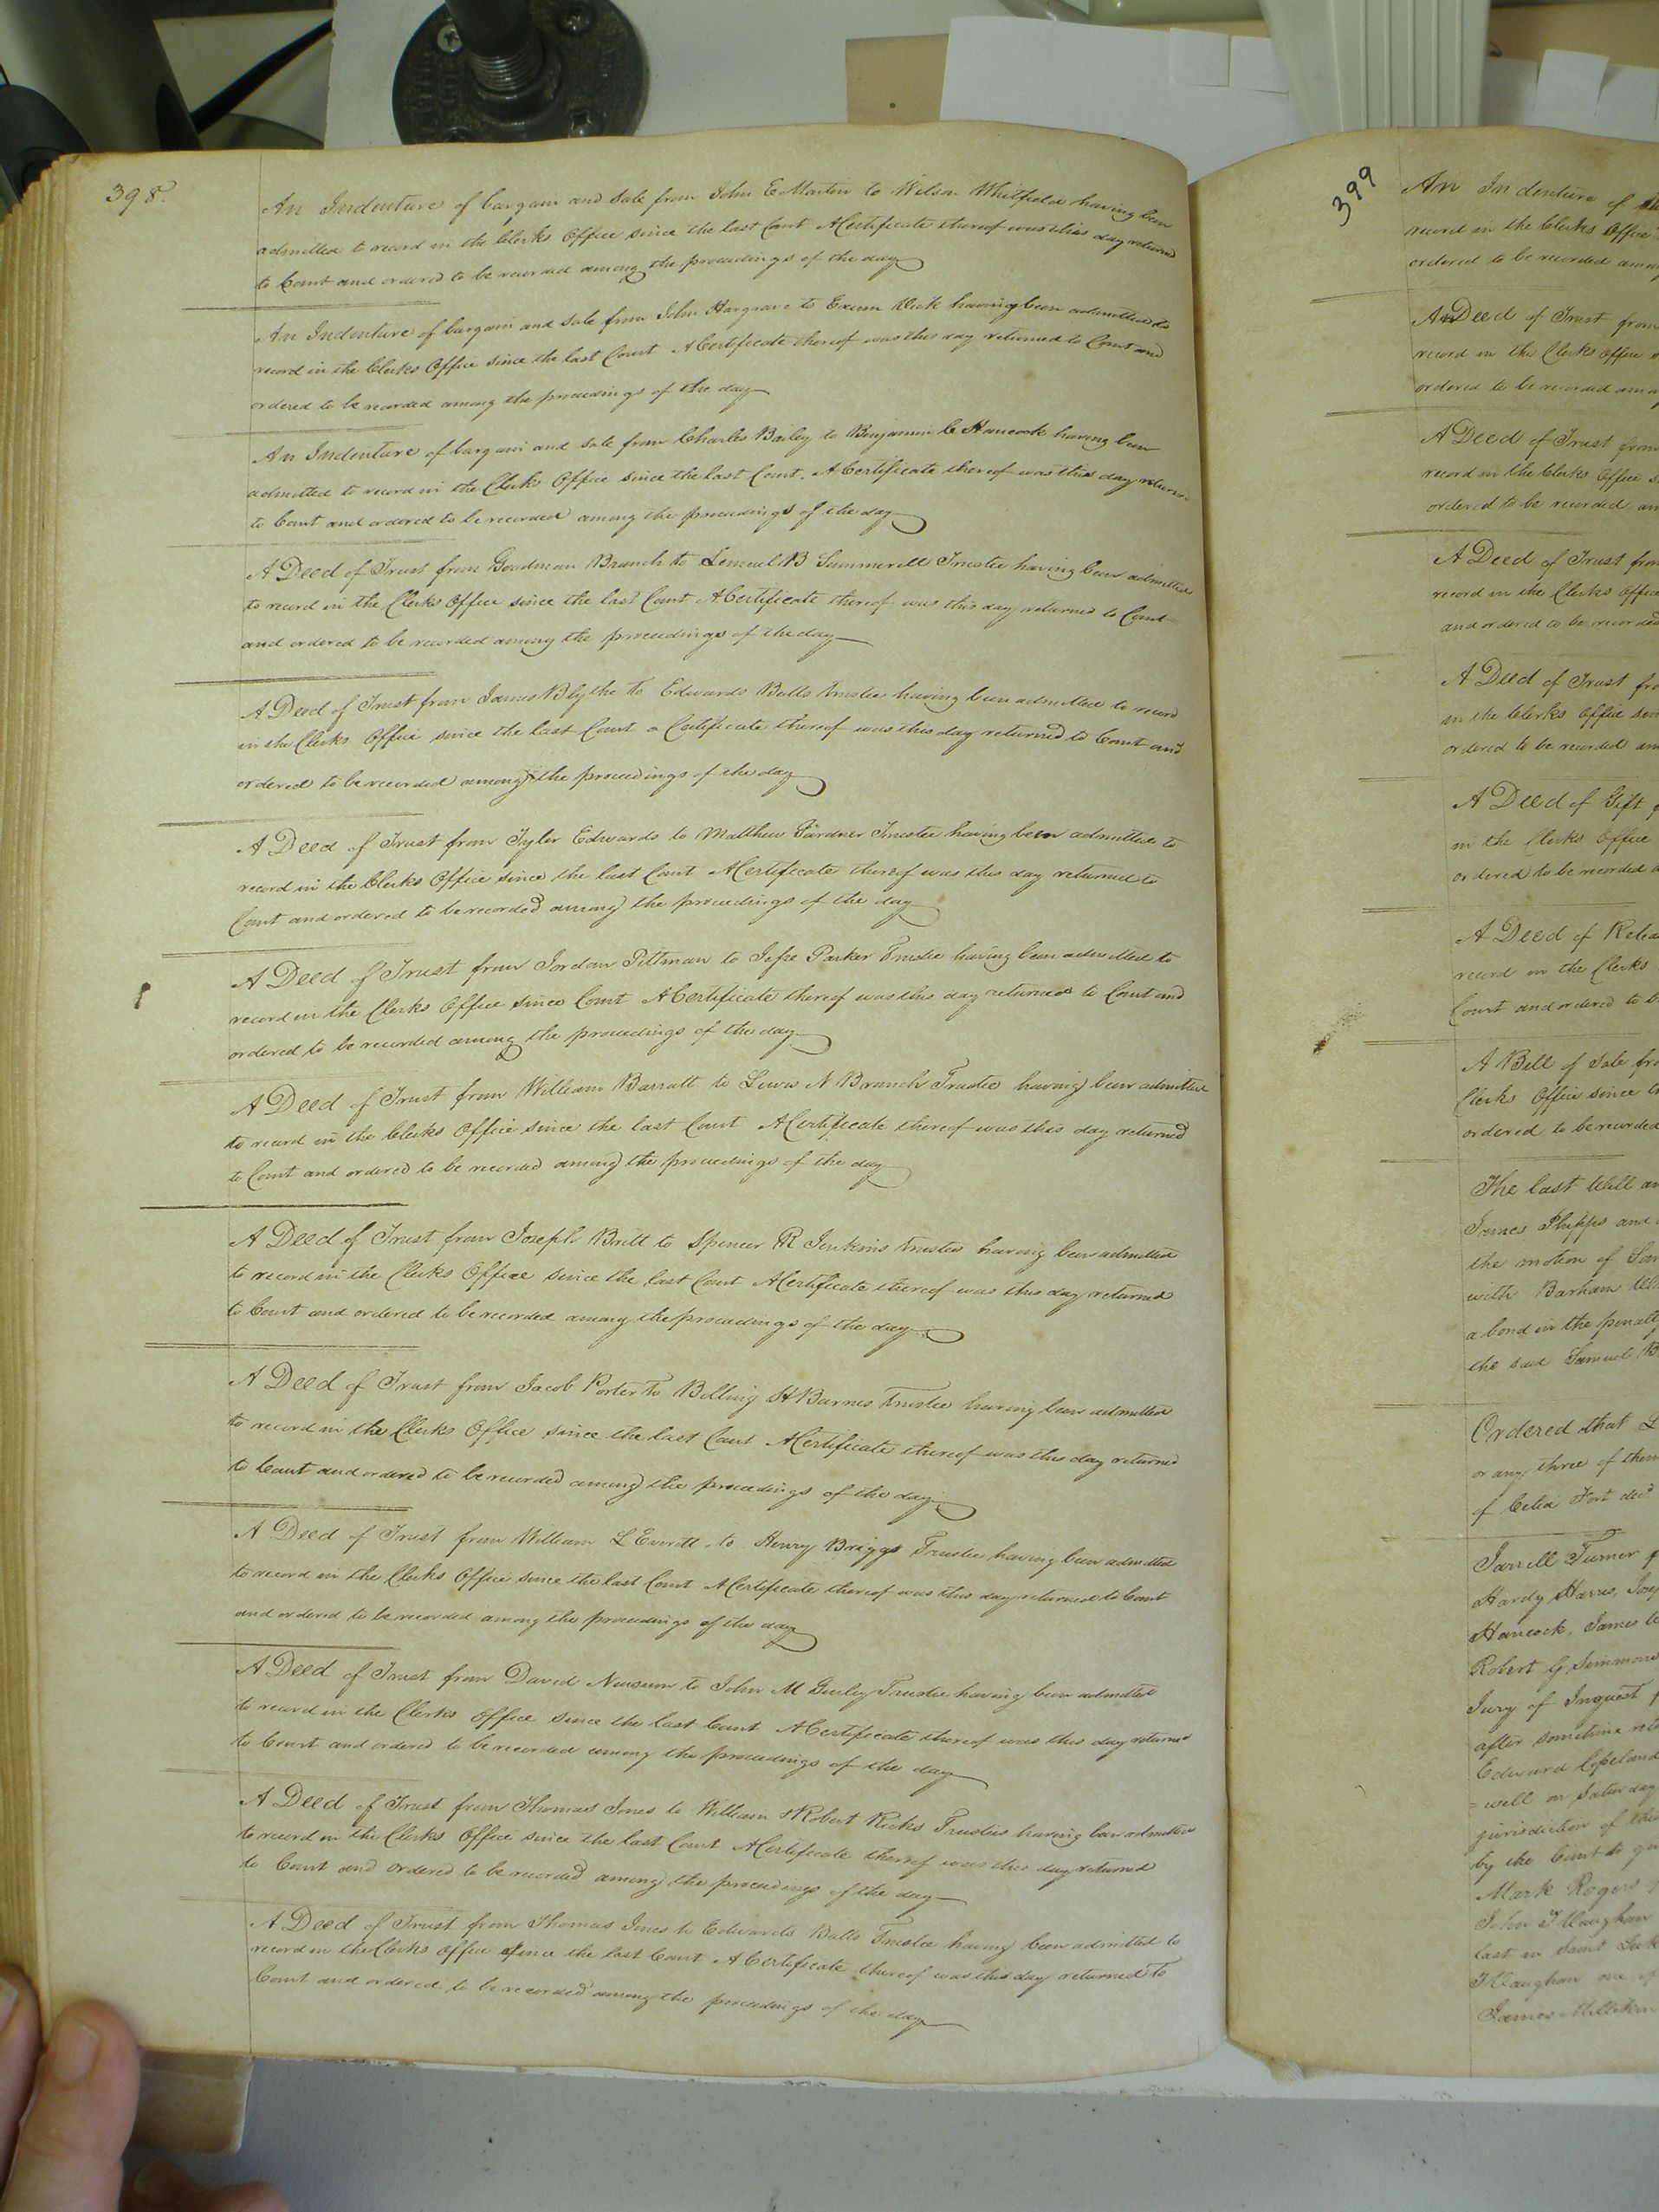 398.
An Indenture of bargain and Sale from John E Martin to Wilson Whitfield having been
admitted to record in the Clerks Office since the last Court A Certificate thereof was this day returned
to Court and ordered to be recorded among the proceedings of the day
An Indenture of bargain and Sale from John Hargrave to Exum Vick having been admitted to
record in the Clerks Office since the last Court A Certificate thereof was this day returned to Court and
ordered to be recorded among the proceedings of the day
An Indenture of bargain and sale from Charles Bailey to Benjamin C Hancock having been
admitted to record in the Clerks Office since the last Court. A Certificate thereof was this day returned
to Court and ordered to be recorded among the proceedings of the day
A Deed of Trust from Goodman Branch to Lemuel B Summerell Trustee having been admitted
to record in the Clerks Office since the last Court A Certificate thereof was this day returned to Court
and ordered to be recorded among the proceedings of the day
A Deed of Trust from James Blythe to Edwards Butts trustee having been admitted to record
in the Clerks Office since the last Court a Certificate thereof was this day returned to Court and
ordered to be recorded among the proceedings of the day
A Deed of Trust from Tyler Edwards to Matthew Gardner Trustee having been admitted to
record in the Clerks Office since the last Court A Certificate thereof was this day returned to
Court and ordered to be recorded among the proceedings of the day
A Deed of Trust from Jordan Pittman to Jesse Parker Trustee having been admitted to
record in the Clerks Office since Court A Certificate thereof was this day returned to Court and
ordered to be recorded among the proceedings of the day
A Deed of Trust from William Barratt to Lewis N Branch Trustee having been admitted
to record in the Clerks Office since the last Court A Certificate thereof was this day returned
to Court and ordered to be recorded among the proceedings of the day
A Deed of Trust from Joseph Britt to Spencer R Jenkins trustee having been admitted
to record in the Clerks Office since the last Court A Certificate thereof was this day returned
to Court and ordered to be recorded among the proceedings of the day
A Deed of Trust from Jacob Porter to Billing H Barnes trustee having been admitted
to record in the Clerks Office since the last Court A Certificate thereof was this day returned
to Court and ordered to be recorded among the proceedings of the day
A Deed of Trust from William L Everitt to Henry Briggs Trustee having been admitted
to record in the Clerks Office since the last Court A Certificate thereof was this day returned to Court
and ordered to be recorded among the proceedings of the day
A Deed of Trust from David Newsum to John M Gurley Trustee having been admitted
to record in the Clerks Office since the last Court A Certificate thereof was this day returned
to Court and ordered to be recorded among the proceedings of the day
A Deed of Trust from Thomas Jones to William & Robert Ricks Trustees having been admitted
to record in the Clerks Office since the last Court A Certificate thereof was this day returned
to Court and ordered to be recorded among the proceedings of the day
A Deed of Trust from Thomas Jones to Edwards Butts Trustee having been admitted to
record in the Clerks Office since the last Court A Certificate thereof was this day returned to
Court and ordered to be recorded among the proceedings of the day
399
An Indenture of
record in the Clerks Office
ordered to be recorded
A Deed of Trust from
record in the Clerks Office
ordered to be recorded
A Deed of Trust from
record in the Clerks Office
ordered to be recorded
A Deed of Trust from
record in the Clerks Office
and ordered to be recorded
A Deed of Trust
in the Clerks Office
ordered to be recorded
A Deed of Gift
in the Clerks Office
ordered to be recorded
A Deed of
record in the Clerks
Court and ordered to
A Bill of Sale
Clerks Office since
ordered to be recorded
The last Will
James Phipps and
the motion of
with Barham
a bond in the
the said Samuel B
Ordered that
or any three of them
of Celia Fort decd
Jarrell Turner
Hardy Harris,
Hancock, James
Robert G. Simmons
Jury of Inquest
after sometime
Edward Copeland
=well on Saturday
jurisdiction of this
by the Court to
Mark Rogers
John T Vaughan
last in Saint
T Vaughan one of
James Millikin